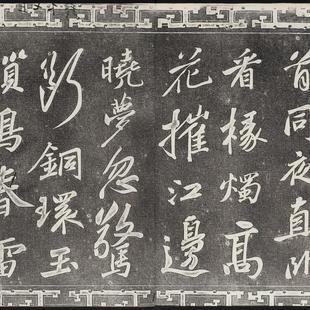 首同夜直卧
看椽燭高
花摧江邊
曉夢忽驚
斷銅環玉
鎖鳴春雷